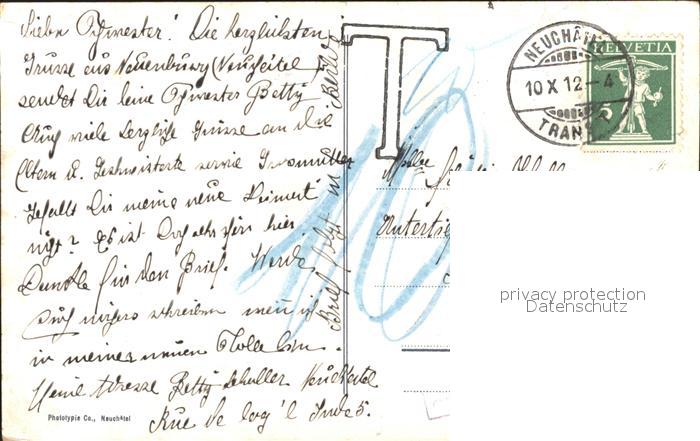 Liebe Schwester! Die herzlichsten
Grüsse aus Neuenburg (Neuchâtel)
sendet Dir deine Schwester Betty
Auch viele herzliche Grüsse an die
Eltern u. Geschwister sowie Grossmutter
Gefällt Dir meine neue Heimat
nicht? Es ist doch sehr schön hier
Danke für den Brief. Werde
auch schreiben wenn ich
in meiner neuen Stelle bin.
Meine Adresse Betty Schaller Neuchâtel
Rue de
Brief folgt
T
10
NEUCHÂTEL
10 X 12 - 4
TRANSIT
HELVETIA
5
Untertü
privacy protection
Datenschutz
Phototypie Co., Neuchâtel